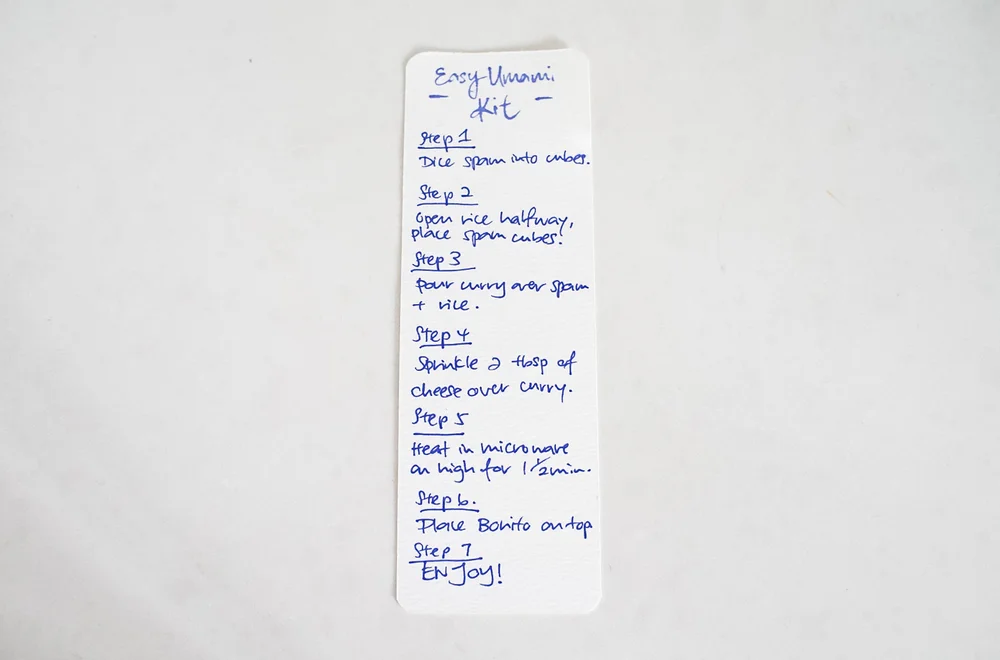 Easy Umami
- Kit -
Step 1
Dice spam into cubes.
Step 2
Open rice halfway,
place spam cubes!
Step 3
Pour curry over spam
+ rice.
Step 4
Sprinkle 2 tbsp of
cheese over curry.
Step 5
Heat in microwave
on high for 1 1/2 min.
Step 6.
Place Bonito on top
Step 7
ENJOY!